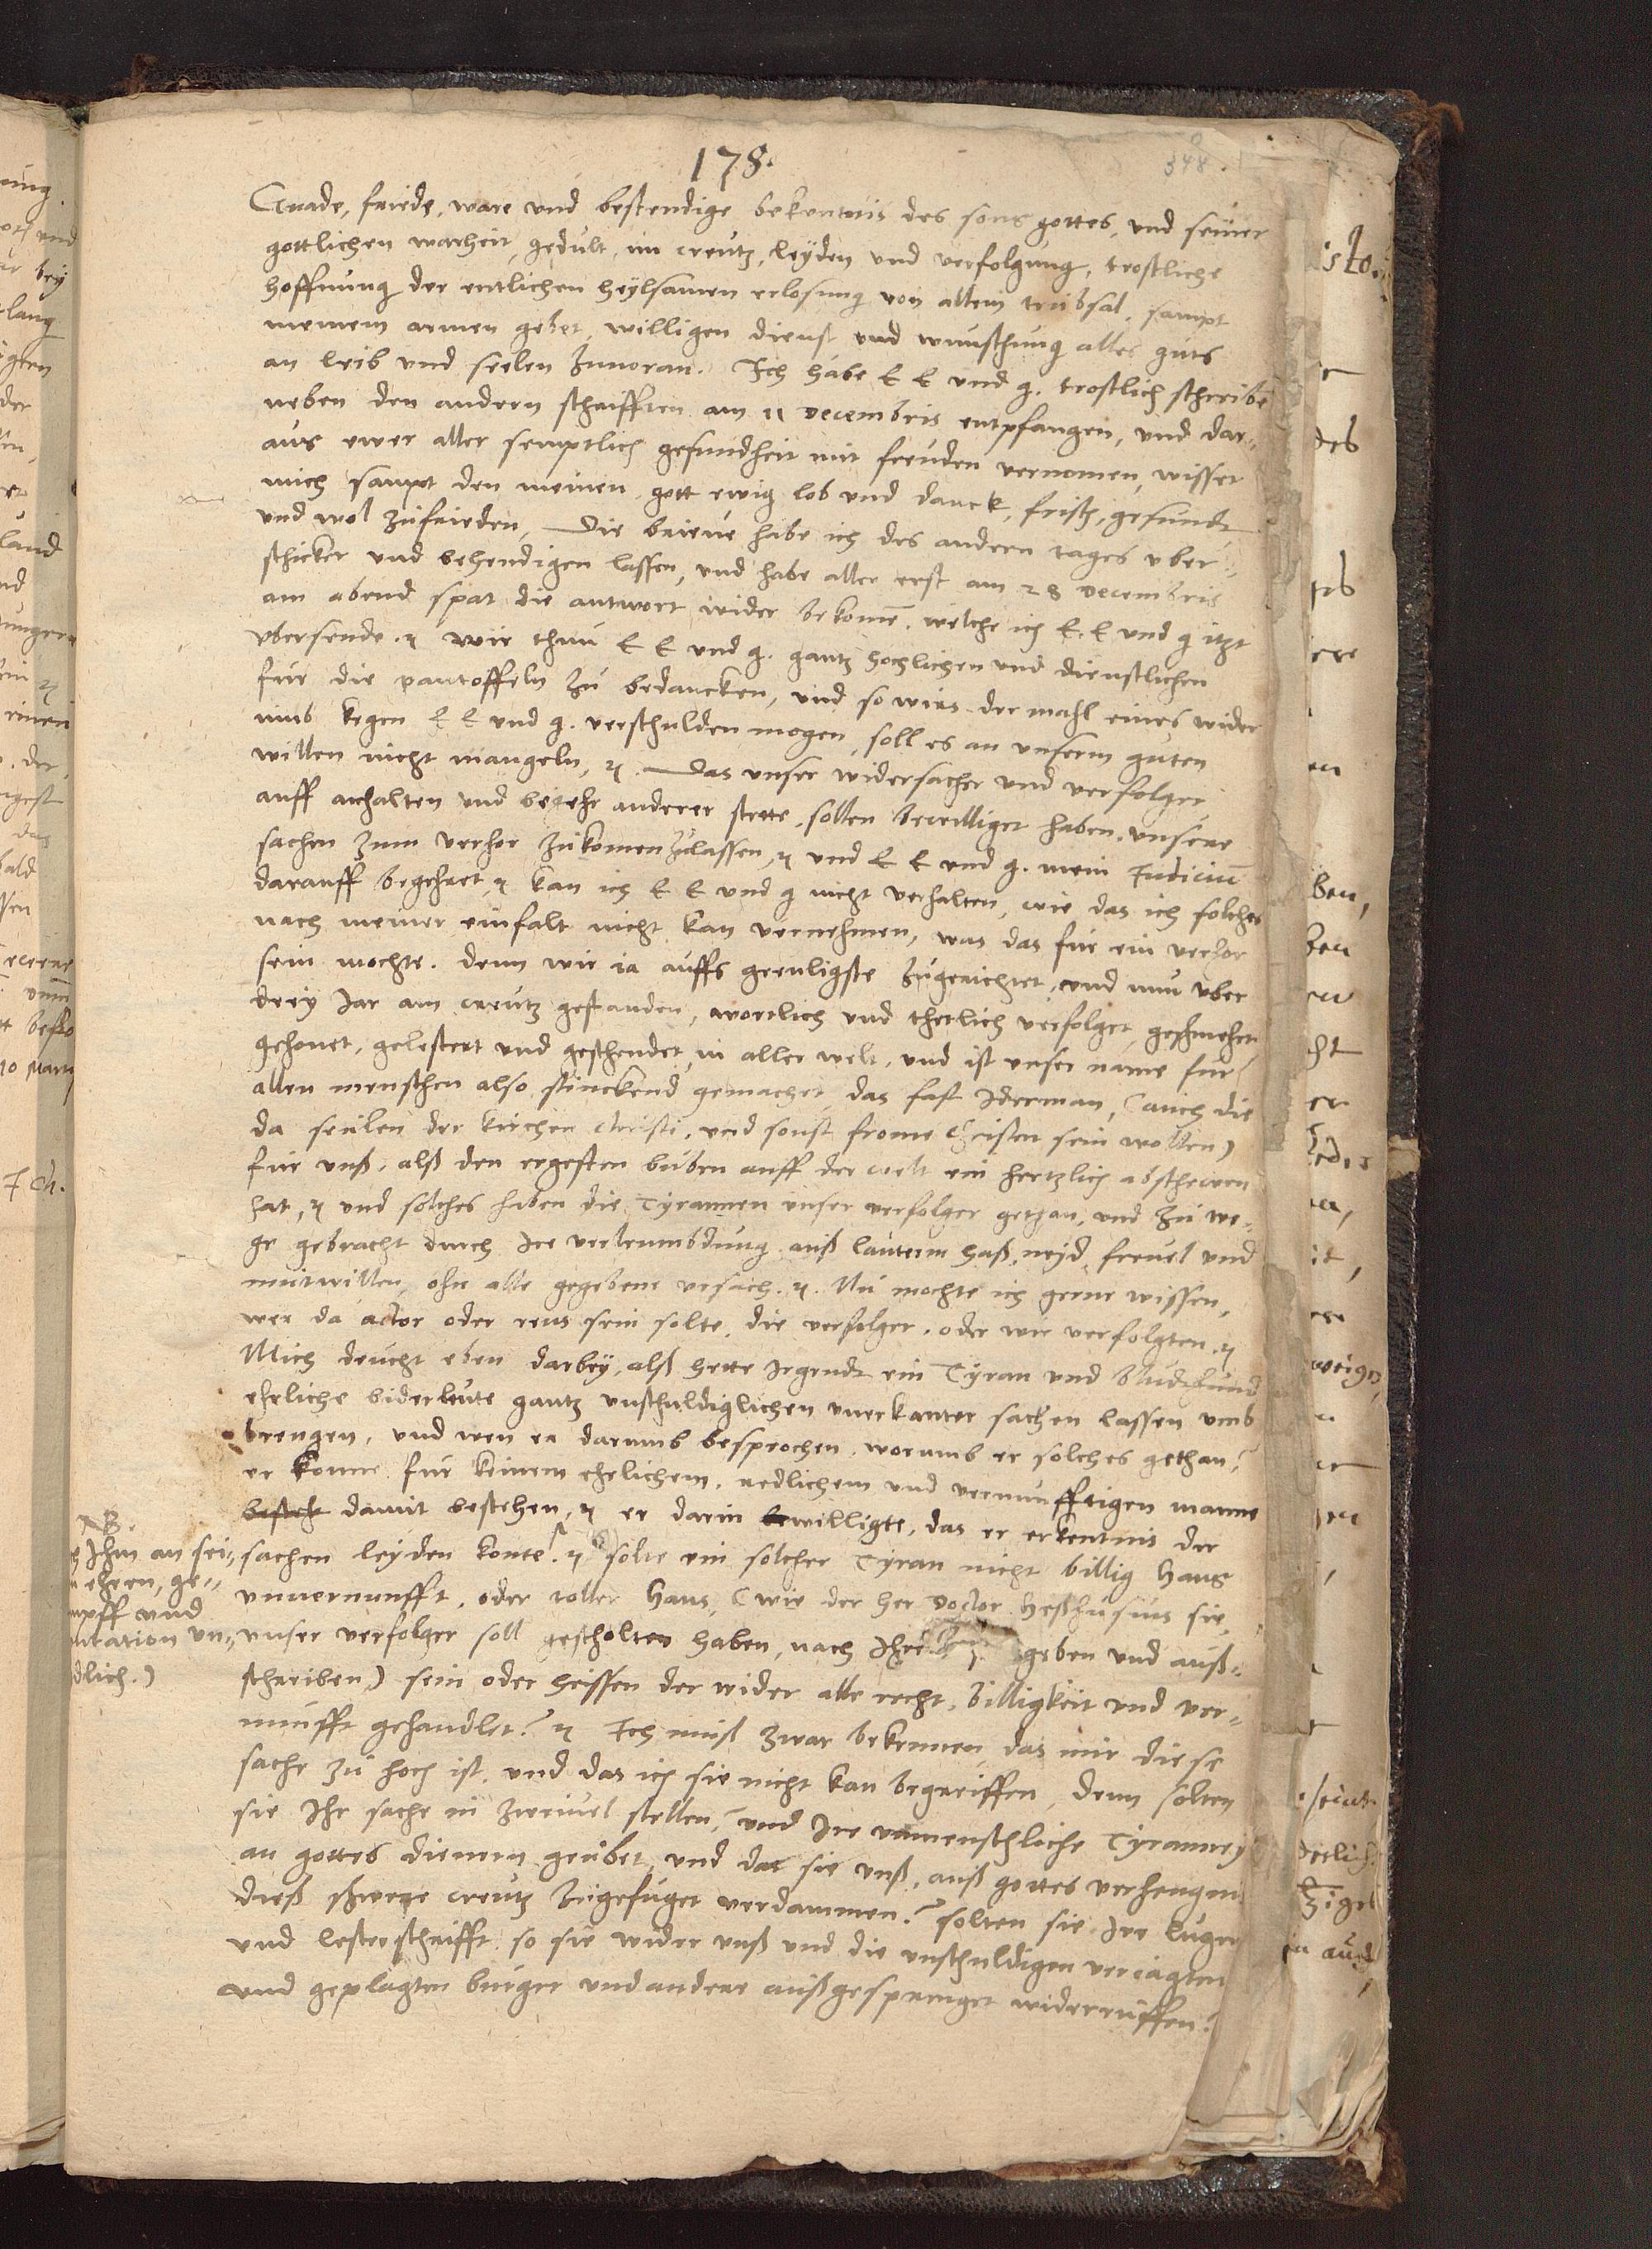 178.
348.
Gnade, friede, ware und bestendige bekentnis des sons gottes, und seiner
gottlichen warheit, gedult, im creutz, leyden und verfolgung, trostliche
hoffnung der entlichen heylsamen erlosung von allem trübsal, sampt
meinem armen gebet, willigen dienst und wunschung alles guts
an leib und seelen zuvoran. Ich habe E E und g. trostlich schreibe
neben den andern schrifften am 11 Decembris entpfangen, und dar-
aus ewer aller semptlich gesundheit mit freuden vernomen, wisset
mich sampt den meinen, gott ewig lob und danck, frisch, gesundt
und wol zufrieden, Die brieve habe ich des andern tages uber
schicket und behendigen lassen, und habe aller erst am 28 Decembris
am abend spat die antwort wider bekomē, welche ich E. E und g itzt
ubersende. ꝛc wir thun E E und g. gantz hochlichen und dienstlichen
für die pantoffeln zu bedancken, und so wirs der mahl eines wider
umb kegen E E und g. verschulden mogen, soll es an unserm guten
willen nicht mangeln, ꝛc. Das unser widersacher und verfolger
auff anhalten und begehr anderer stette, sollen bewilliget haben, unsere
sachen zum verhor zukomen zulassen, ꝛc und E E und g. mein Iudiciū
darauff begehret, ꝛc kan ich E E und g nicht verhalten, wie das ich solches
nach meiner einfalt nicht kan vernehmen, was das für ein verhor
sein mochte. denn wir ia auffs greuligste zugerichtet, und nun uber
drey Jar am creutz gestanden, wortlich und thetlich verfolget, geschmehet
gehonet, gelestert und geschendet in aller welt, und ist unser name fur
allen menschen also stinckend gemachet, das fast Iderman, (auch die
da seulen der kirchen Christi, und sonst frome Christen sein wollen)
für unß, alß den ergesten buben auff der welt ein hertzlich abschewen
hat, ꝛc und solches haben die Tyrannen unser verfolger gethan, und zu we-
ge gebracht durch Ire verleumbdung auß lauterm haß, neyd, frevel und
mutwillen, ohn alle gegebene ursach. ꝛc. Nu mochte ich gerne wissen,
wer da actor oder reus sein solte, die verfolger, oder wir verfolgten. ꝛc
Mich deucht eben darbey, alß hette Irgendt ein Tyran und Bludthund
ehrliche biderleute gantz unschuldiglichen unerkanter sachen lassen umb
brengen, und wen er darumb besprochen, worumb er solches gethan,
er konne für keinem ehrlichem, redlichem und vernunfftigen manne
damit bestehen, ꝛc er darin bewilligte, das er erkentnis der
sachen leyden konte? ꝛc solte ein solcher Tyran nicht billig Hans
unvernunfft, oder toller Hans, (wie der her Doctor Heßhusius sie,
unser verfolger soll gescholten haben, nach Ihre geben und auß-
schreiben) sein oder heissen der wider alle recht, billigkeit und ver-
nunfft gehandlet? ꝛc Ich muß zwar bekennen, das mir diese
sache zu hoch ist, und das ich sie nicht kan begreiffen, denn solten
sie Ihr sache in zweivel stellen, und Ire unmenschliche Tyranney
an gottes dienern geübet, und das sie unß, auß gottes verhengni
dieß schwere creutz zugefuget verdammen? solten sie Ire lugen
und lesterschrifft, so sie wider unß und die unschuldigen veriagten
und geplagten burger und andere außgesprenget widerruffen?
NB.
Ihm an sei-
ehren, ge-
mpff und
utation un-
dlich.)